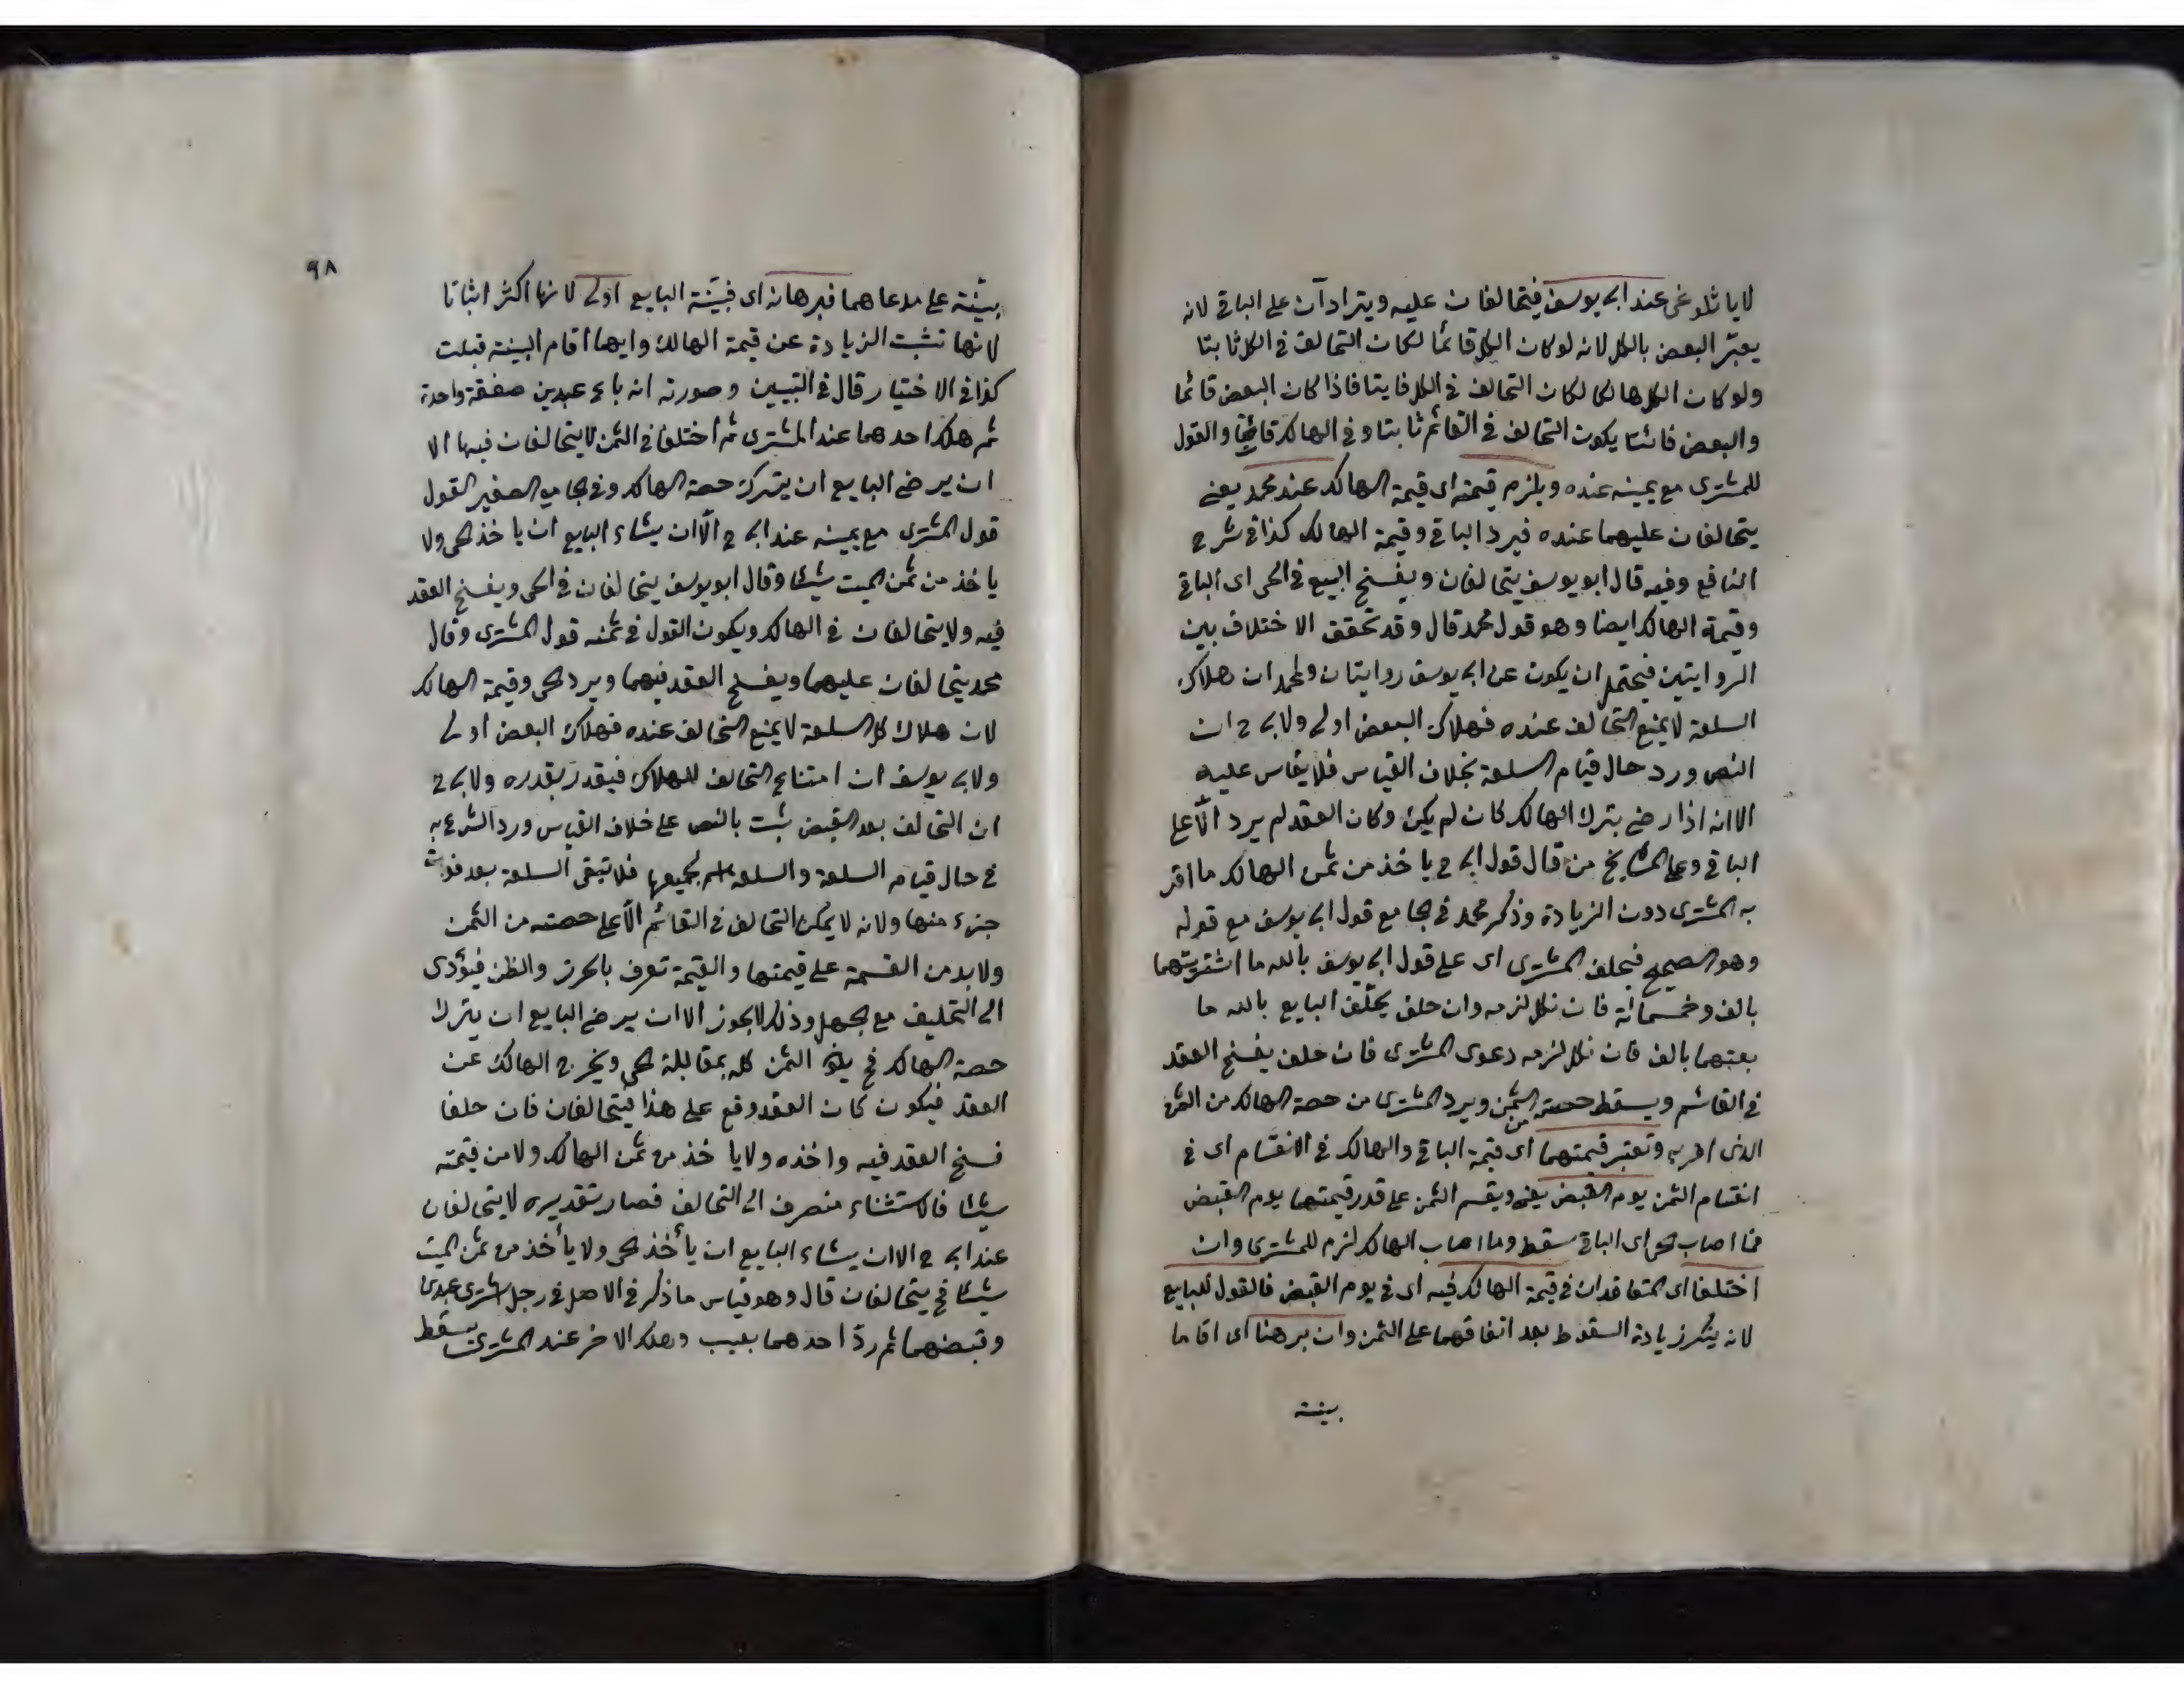 لايا ثلوغى عند ابى يوسف فيتحالفان عليه ويترادّان على الباقى لانه
يعتبر البعض بالكل لانه لو كان الكل قائما لكان التحالف فى الكل ثابتا
ولو كان الكل هالكا لكان التحالف فى الكل فايتا فاذا كان البعض قائما
والبعض فائتا يكون التحالف فى القائم ثابتا وفى الهالك والقول
للمشترى مع يمينه عنده ويلزم قيمته اى قيمة الهالك عند محمد يعنى
يتحالفان عليهما عنده فيرد الباقى وقيمة الهالك كذا فى شرح
النافع وفيه قال ابو يوسف يتحالفان ويفسخ البيع فى الحى اى الباقى
وقيمة الهالك ايضا وهو قول محمد قال وقد تحقق الاختلاف بين
الروايتين فيحتمل ان يكون عن ابى يوسف روايتان ولمحمد ان هلاك
السلعة لا يمنع التحالف عنده فهلاك البعض اولى ولابى ح ان
النص ورد حال قيام السلعة بخلاف القياس فلا يقاس عليه
الا انه اذا رضى بترك الهالك كان لم يكن وكان العقد لم يرد الّا على
الباقى وعلى المشايخ من قال قول ابى ح ياخذ من ثمن الهالك ما اقر
به المشترى دون الزيادة وذكر محمد فى الجامع قول ابى يوسف مع قوله
وهو الصحيح فيحلف المشترى اى على قول ابى يوسف بالله ما اشتريتهما
بالف وخمسمائة فان نكل لزمه وان حلف يحلّف البايع بالله ما
بعتهما بالف فان نكل لزمه دعوى المشترى فان حلف يفسخ العقد
فى القائم ويسقط حصته من الثمن ويرد المشترى من حصة الهالك من الثمن
الذى اقر به وتعتبر قيمتهما اى قيمة الباقى والهالك فى الانقسام اى فى
انقسام الثمن يوم القبض يعنى ويقسم الثمن على قدر قيمتهما يوم القبض
فما اصاب الحى اى الباقى سقط وما اصاب الهالك لزم للمشترى وان
اختلفا اى المتعاقدان فى قيمة الهالك فيه اى فى يوم القبض فالقول للبايع
لانه ينكر زيادة السقوط بعد اتفاقهما على الثمن وان برهنا اى اقاما
بينة
٩٨
بيّنة على مدعاهما فبرهانه اى فبيّنة البايع اولى لانها اكثر اثباتا
لانها تثبت الزيادة عن قيمة الهالك وايهما اقام البينة قبلت
كذا فى الاختيار قال فى التبيين وصورته انه باع عبدين صفقة واحدة
ثم هلك احدهما عند المشترى ثم اختلفا فى الثمن لا يتحالفان فيها الا
ان يرضى البايع ان يترك حصة الهالك وفى الجامع الصغير القول
قول المشترى مع يمينه عند ابى ح الّا ان يشاء البايع ان ياخذ الحى ولا
ياخذ من ثمن الميت شيئا وقال ابو يوسف يتحالفان فى الحى ويفسخ العقد
فيه ولا يتحالفان فى الهالك ويكون القول فى ثمنه قول المشترى وقال
محمد يتحالفان عليهما ويفسخ العقد فيهما ويرد الحى وقيمة الهالك
لان هلاك كل السلعة لا يمنع التحالف عنده فهلاك البعض اولى
ولابى يوسف ان امتناع التحالف للهلاك فيقدر بقدره ولابى ح
ان التحالف بعد القبض ثبت بالنص على خلاف القياس ورد الشرع به
فى حال قيام السلعة والسلعة اسم لجميعها فلا تبقى السلعة بعد فوات
جزء منها ولانه لا يمكن التحالف فى القائم الّا على حصته من الثمن
ولا بد من القسمة على قيمتها والقيمة تعرف بالحرز والظن فيؤدى
الى التحليف مع الجهل وذلك لا يجوز الا ان يرضى البايع ان يترك
حصة الهالك فح الثمن كله بمقابلة الحى ويخرج الهالك عن
العقد فيكون كان العقد وقع على هذا فيتحالفان فان حلفا
فسخ العقد فيه واخذه ولا ياخذ من ثمن الهالك ولا من قيمته
شيئا فالاستثناء منصرف الى التحالف فصار تقديره لا يتحالفان
عند ابى ح الا ان يشاء البايع ان يأخذ الحى ولا يأخذ من ثمن الميت
شيئا فح يتحالفان قال وهو قياس ما ذكر فى الاصل فى رجل اشترى عبدين
وقبضهما ثم ردّ احدهما بعيب وهلك الاخر عند المشترى يسقط